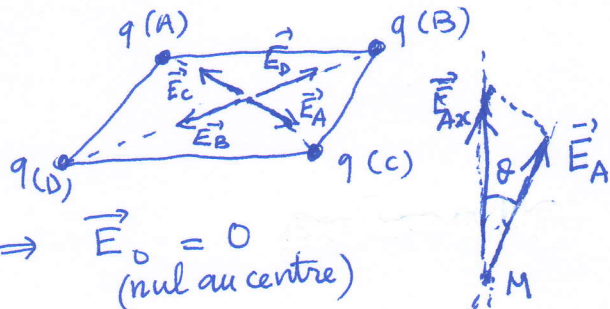 q (A) q (B)
E⃗_D
E⃗_C E⃗_A
E⃗_B
q (D) q (C)
E⃗_Ax E⃗_A
θ
⇒ E⃗_0 = 0
(nul au centre)
M